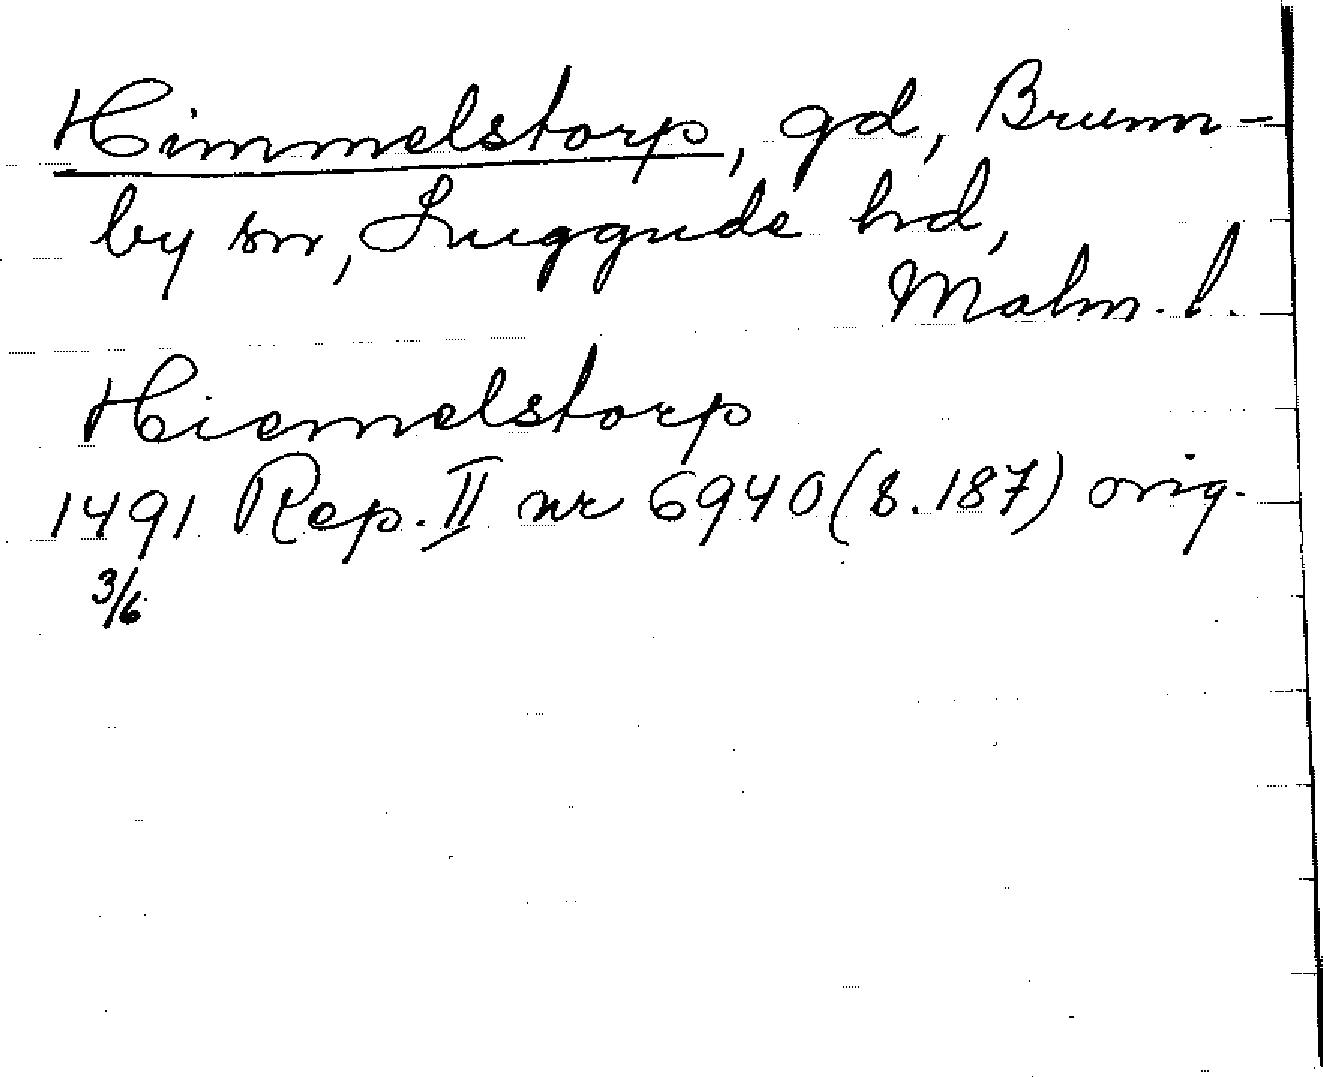 Himmelstorp, gd, Brunn-
by sn, Luggude hd,
Malm. l.
Hiemelstorp
1491 Rep. II nr 6940 (s. 187) orig.
3/6